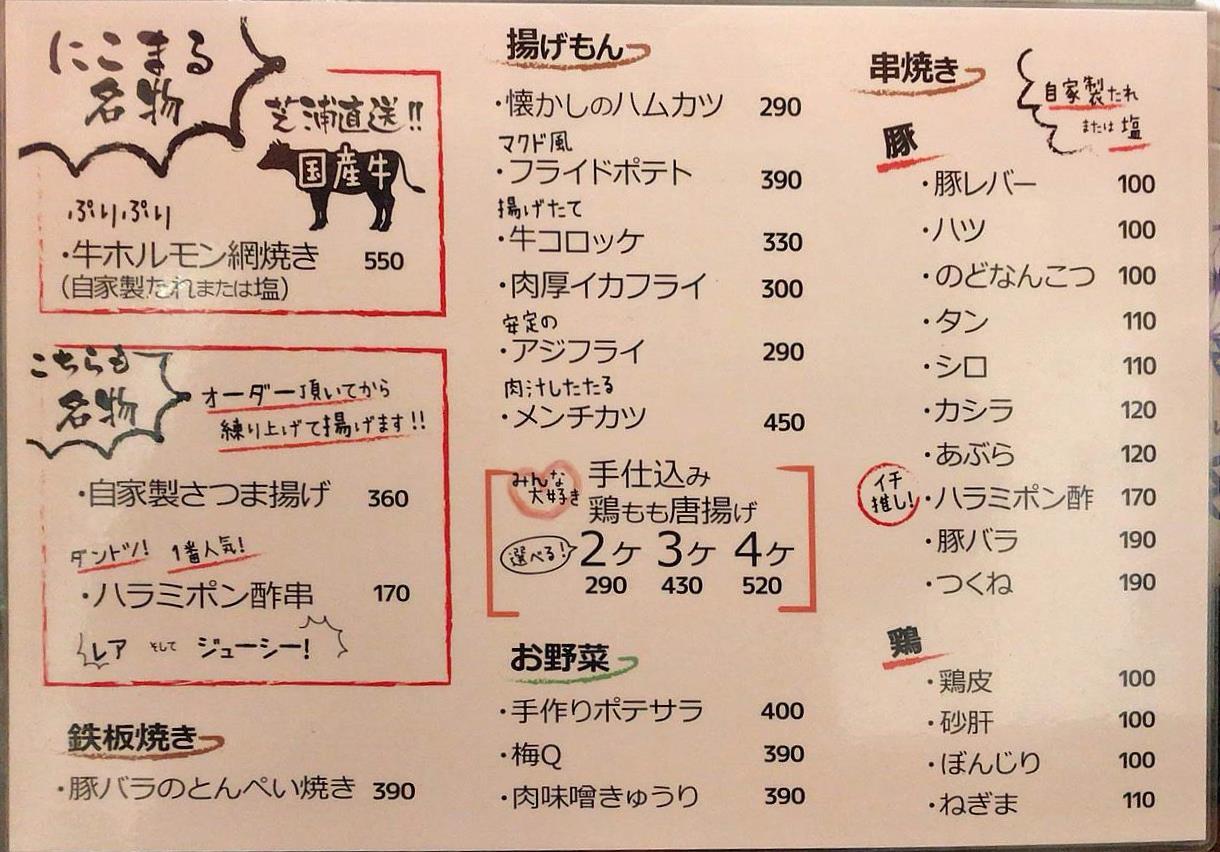 にこまる
名物
芝浦直送!!
国産牛
ぷりぷり
・牛ホルモン網焼き 550
(自家製たれまたは塩)
こちらも
名物
オーダー頂いてから
練り上げて揚げます!!
・自家製さつま揚げ 360
ダントツ! 1番人気!
・ハラミポン酢串 170
レア そして ジューシー!
鉄板焼き
・豚バラのとんぺい焼き 390
揚げもん
・懐かしのハムカツ 290
マクド風
・フライドポテト 390
揚げたて
・牛コロッケ 330
・肉厚イカフライ 300
安定の
・アジフライ 290
肉汁したたる
・メンチカツ 450
みんな
大好き
手仕込み
鶏もも唐揚げ
選べる! 2ヶ 3ヶ 4ヶ
290 430 520
お野菜
・手作りポテサラ 400
・梅Q 390
・肉味噌きゅうり 390
串焼き
自家製たれ
または塩
豚
・豚レバー 100
・ハツ 100
・のどなんこつ 100
・タン 110
・シロ 110
・カシラ 120
・あぶら 120
イチ
推し!
・ハラミポン酢 170
・豚バラ 190
・つくね 190
鶏
・鶏皮 100
・砂肝 100
・ぼんじり 100
・ねぎま 110